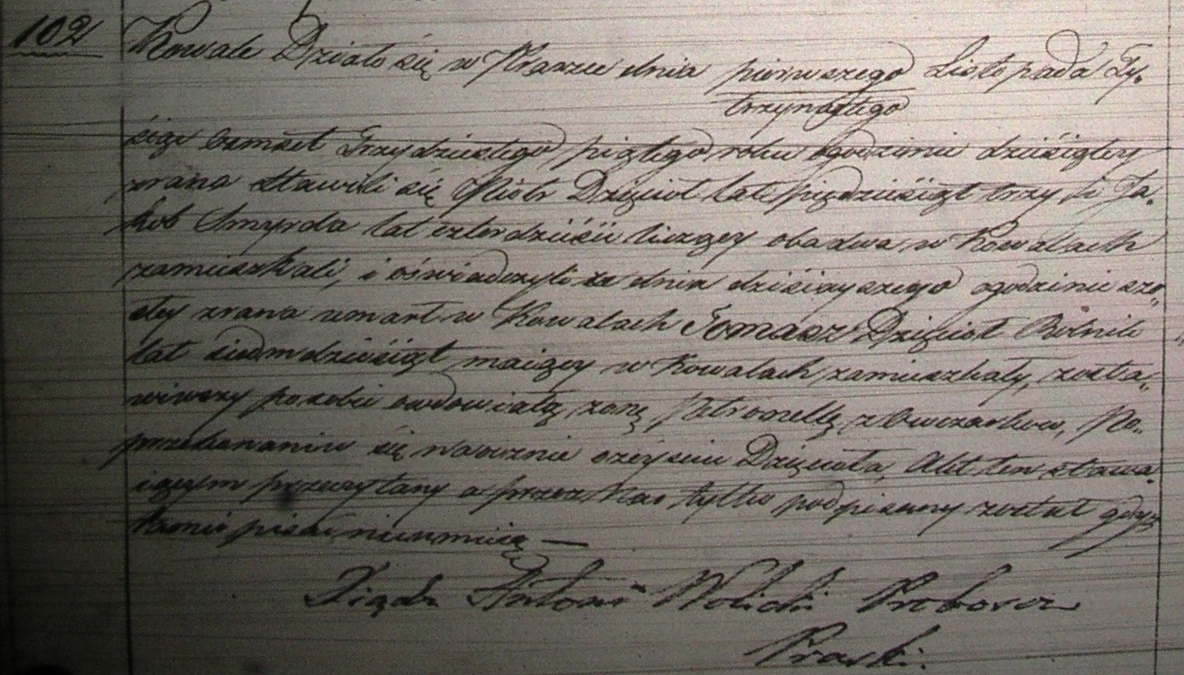 102 Kowale Działo się w Praszce dnia pierwszego Listopada Ty-
trzynastego
siąc osmset Trzydziestego piątego roku ogodzinie dziesiątey
zrana stawili się Piotr Dzięcioł lat pięćdziesiąt trzy i Ja-
kob Smyrda lat czterdzieści liczący obadwa w Kowalach
zamieszkali, i oświadczyli że dnia dzisieyszego ogodzinie szó-
stey zrana umarł w Kowalach Tomasz Dzięcioł Rolnik
lat siedmdziesiąt maiący w Kowalach zamieszkały, zosta-
wiwszy posobie owdowiałą żonę Petronellę z Owczarków, Po
przekonaniu się naocznie ozeyściu Dzięcioła, Akt ten stawa-
iącym przeczytany a przez Nas tylko podpisany został gdyż
pisać nieumieią —
Xiądz Antoni Wolicki Proboszcz
Praszki.